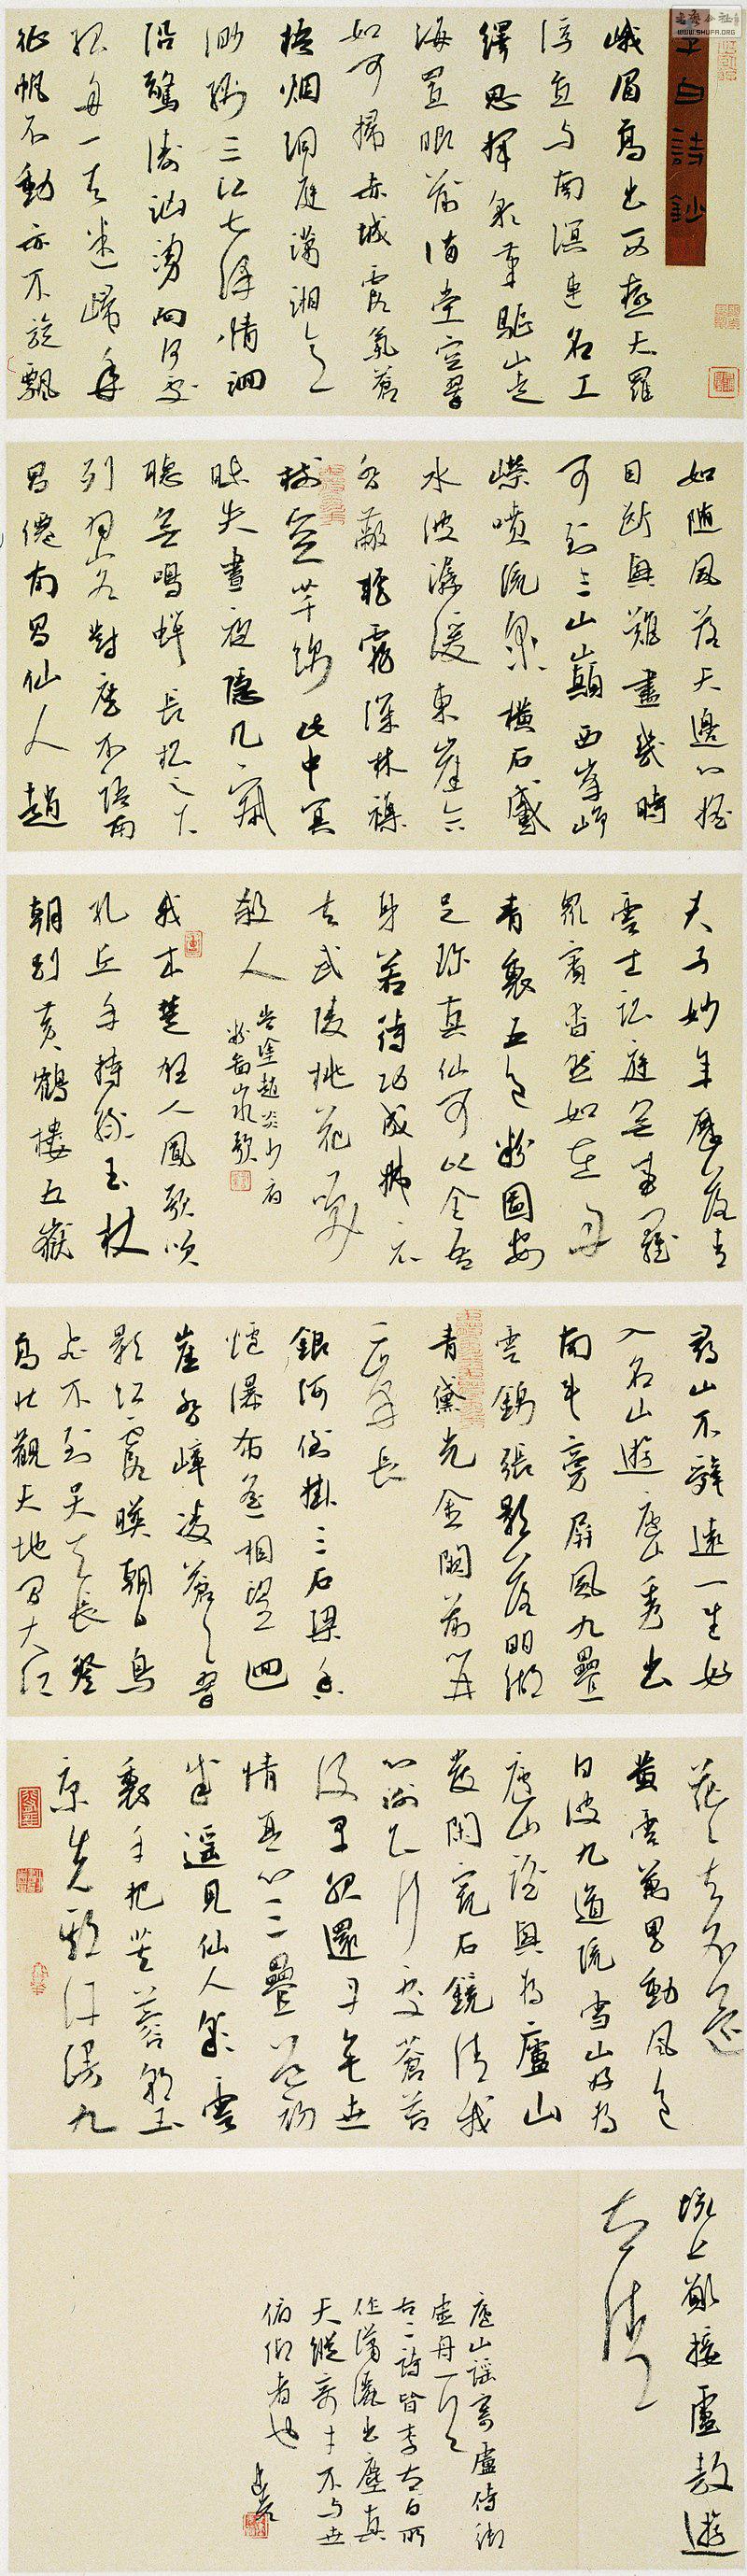 书法公社
WWW.SHUFA.ORG
李白詩鈔
峨眉高出西極天羅
浮直与南溟連名工
繹思揮彩筆驅山走
海置眼前滿堂空翠
如可掃赤城霞氣蒼
梧烟洞庭瀟湘意
渺綿三江七澤情洄
沿驚濤洶湧向何處
孤舟一去迷歸年
征帆不動亦不旋飄
如隨風落天邊心搖
目斷興難盡幾時
可到三山巔西峯崢
嶸噴流泉橫石蹙
水波潺湲東崖合
沓蔽輕霧深林雜
樹空芊綿此中冥
昧失晝夜隱几寂
聽無鳴蟬長松之下
列羽客對座不語南
昌僊南昌仙人趙
夫子妙年歷落青
雲士訟庭無事羅
眾賓杳然如在丹
青裏五色粉圖安
足珍真仙可以全吾
身若待功成拂衣
去武陵桃花笑
殺人
當塗趙炎少府
粉圖山水歌
我本楚狂人鳳歌笑
孔丘手持綠玉杖
朝別黃鶴樓五嶽
尋山不辭遠一生好
入名山遊廬山秀出
南斗旁屏風九疊
雲錦張影落明湖
青黛光金闕前開
二峯長
銀河倒掛三石梁香
爐瀑布遙相望迴
崖沓嶂淩蒼蒼翠
影紅霞映朝日鳥
飛不到吳天長登
高壯觀天地間大江
茫茫去不還
黃雲萬里動風色
白波九道流雪山好為
廬山謠興為廬山
發閑窺石鏡清我
心謝公行處蒼苔
沒早服還丹無世
情琴心三疊道初
成遙見仙人綵雲
裏手把芙蓉朝玉
京先期汗漫九
垓上願接盧敖遊
太清
廬山謠寄盧侍御
虛舟一首
右二詩皆李太白所
作瀟灑出塵真
天縱奇才不与世
俯仰者也